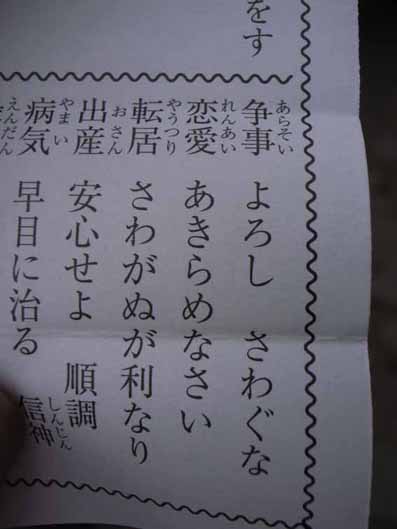 をす
争事 あらそい よろし さわぐな
恋愛 れんあい あきらめなさい
転居 やうつり さわがぬが利なり
出産 おさん 安心せよ 順調
病気 やまい 早目に治る 信神 しんじん
えんだん